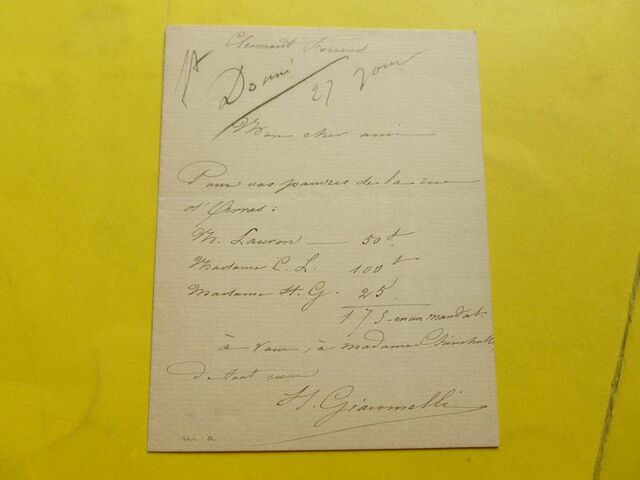 Clermont Ferrand
Donné 27
Mon cher ami
Pour vos pauvres de la rue
d'
M. Lauron — 50 f.
Madame C. L. 100 f
Madame H. G. 25.
175 en un mandat
à vous, à madame
de tout cœur
H. Giacomelli